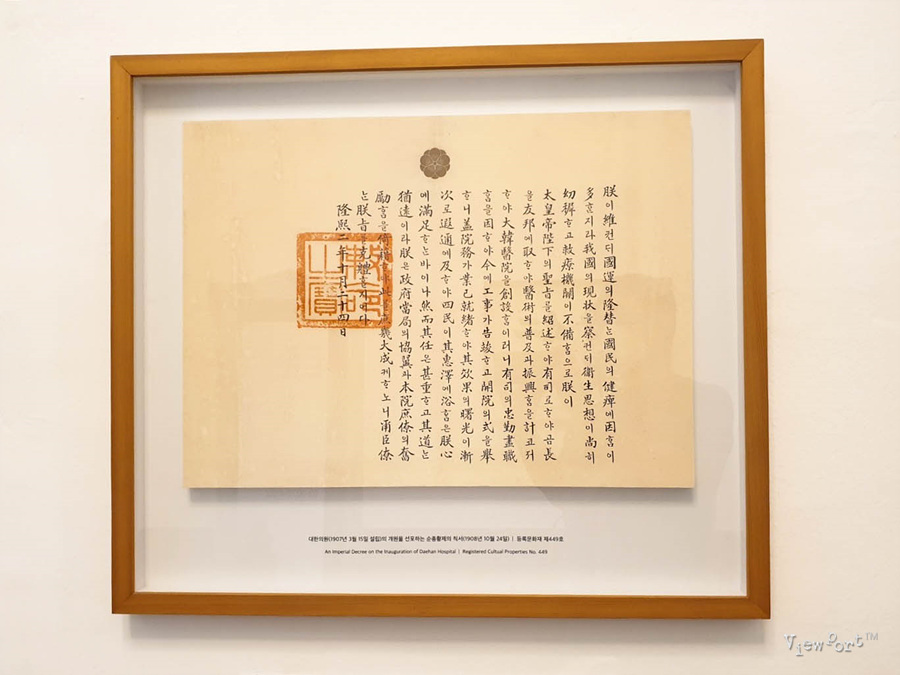 朕이維컨ᄃᆡ國運의隆替ᄂᆞᆫ國民의健痺에因ᄒᆞᆷ이
多ᄒᆞᆫ지라我國의現状을察컨ᄃᆡ衛生思想이尚히
幼穉ᄒᆞ고救療機關이不備ᄒᆞᆷ으로朕이
太皇帝陛下의聖旨를紹述ᄒᆞ야有司로ᄒᆞ야곰長
을友邦에取ᄒᆞ야醫術의普及과振興ᄒᆞᆷ을計고져
ᄒᆞ야大韓醫院을創設ᄒᆞᆷ이러니有司의忠勤盡職
ᄒᆞᆷ을因ᄒᆞ야今에工事가告竣ᄒᆞ고開院의式을擧
ᄒᆞ니盖院務가業已就緒ᄒᆞ야其効果의曙光이漸
次로遐邇에及ᄒᆞ야四民이其惠澤에浴ᄒᆞᆷ은朕心
에滿足ᄒᆞᄂᆞᆫ바이나然而其任은甚重ᄒᆞ고其道ᄂᆞᆫ
猶遠이라朕은政府當局의協翼과本院庶僚의奮
勵ᄒᆞᆷ을 大成케ᄒᆞ노니甫臣僚
ᄂᆞᆫ朕旨를克體ᄒᆞᆯ지어다
隆熙二年十月二十四日
勅命之寶
대한의원(1907년 3월 15일 설립)의 개원을 선포하는 순종황제의 칙서(1908년 10월 24일) | 등록문화재 제449호
An Imperial Decree on the Inauguration of Daehan Hospital | Registered Cultual Properties No. 449
ViewPort™